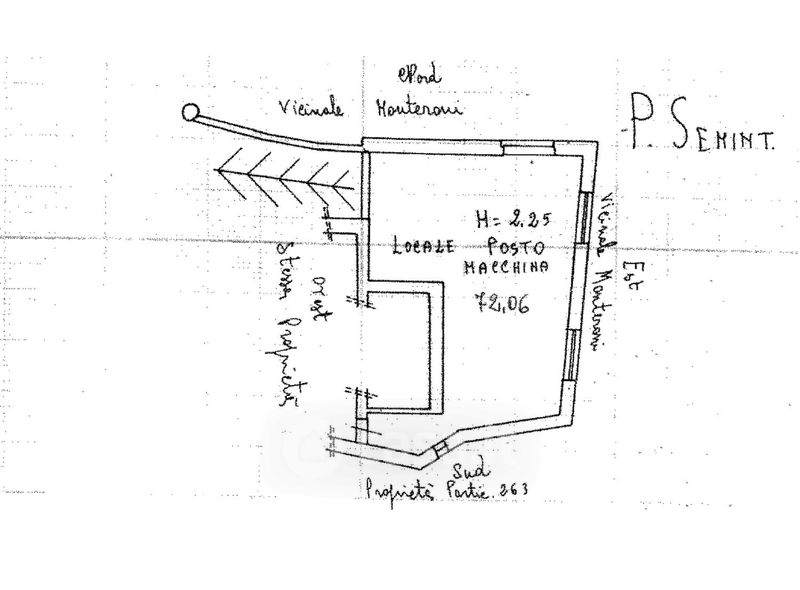 Nord
Vicinale Monteroni
P. SEMINT.
H= 2.25
LOCALE POSTO
MACCHINA
72,06
Vicinale Monteroni
Est
Ovest
Stessa Proprietà
Sud
Proprietà Partic. 263